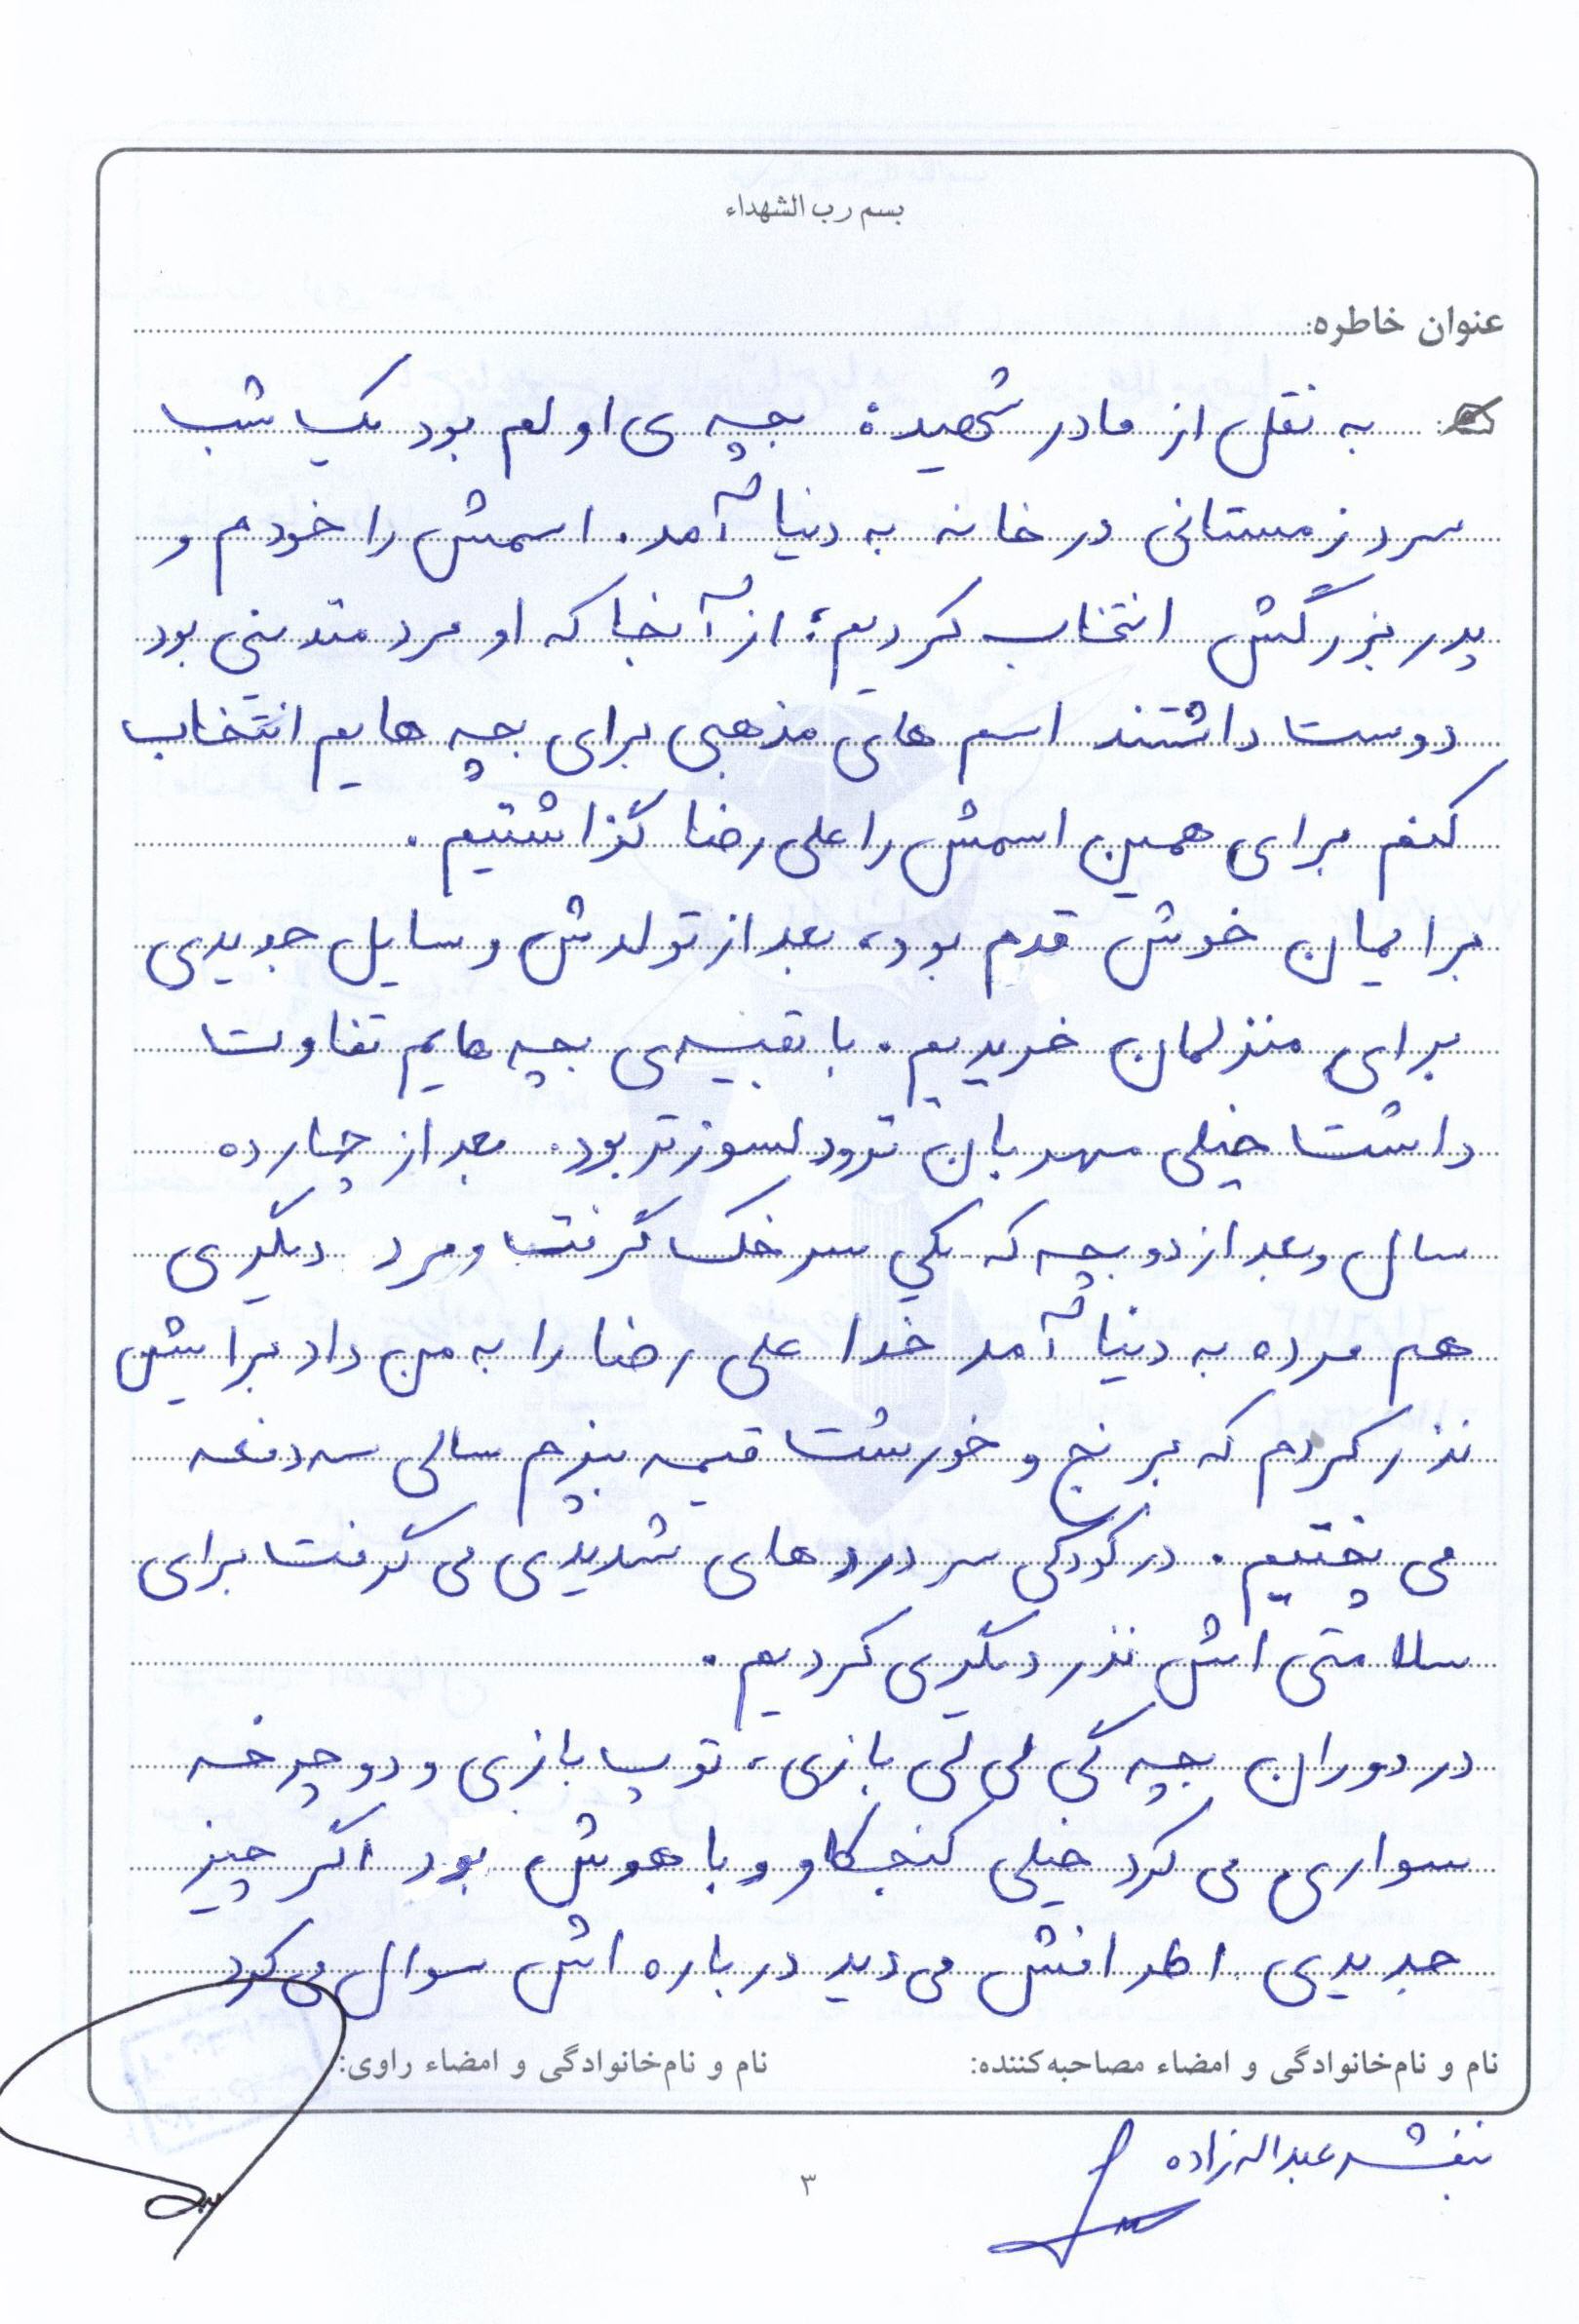 بسم رب الشهداء
عنوان خاطره:
به نقل از مادر شهید: بچه ی اولم بود یک شب
سرد زمستانی در خانه به دنیا آمد. اسمش را خودم و
پدربزرگش انتخاب کردیم؛ از آنجا که او مرد متدینی بود
دوست داشتند اسم های مذهبی برای بچه هایم انتخاب
کنم برای همین اسمش را علی رضا گزاشتیم.
برایمان خوش قدم بود، بعد از تولدش وسایل جدیدی
برای منزلمان خریدیم. با بقیه ی بچه هایم تفاوت
داشت خیلی مهربان تر و دلسوزتر بود. بعد از چهارده
سال و بعد از دو بچه که یکی سرخک گرفت و مرد دیگری
هم مرده به دنیا آمد خدا علی رضا را به من داد برایش
نذر کردم که برنج و خورشت قیمه بپزم سالی سه دفعه
می پختیم. در کودکی سردردهای شدیدی می گرفت برای
سلامتی اش نذر دیگری کردیم.
در دوران بچه گی لی لی بازی، توپ بازی و دوچرخه
سواری می کرد خیلی کنجکاو و باهوش بود اگر چیز
جدیدی اطرافش می دید درباره اش سوال می کرد
نام و نام‌خانوادگی و امضاء مصاحبه‌کننده: نام و نام‌خانوادگی و امضاء راوی:
بنفشه عبداله زاده
۳